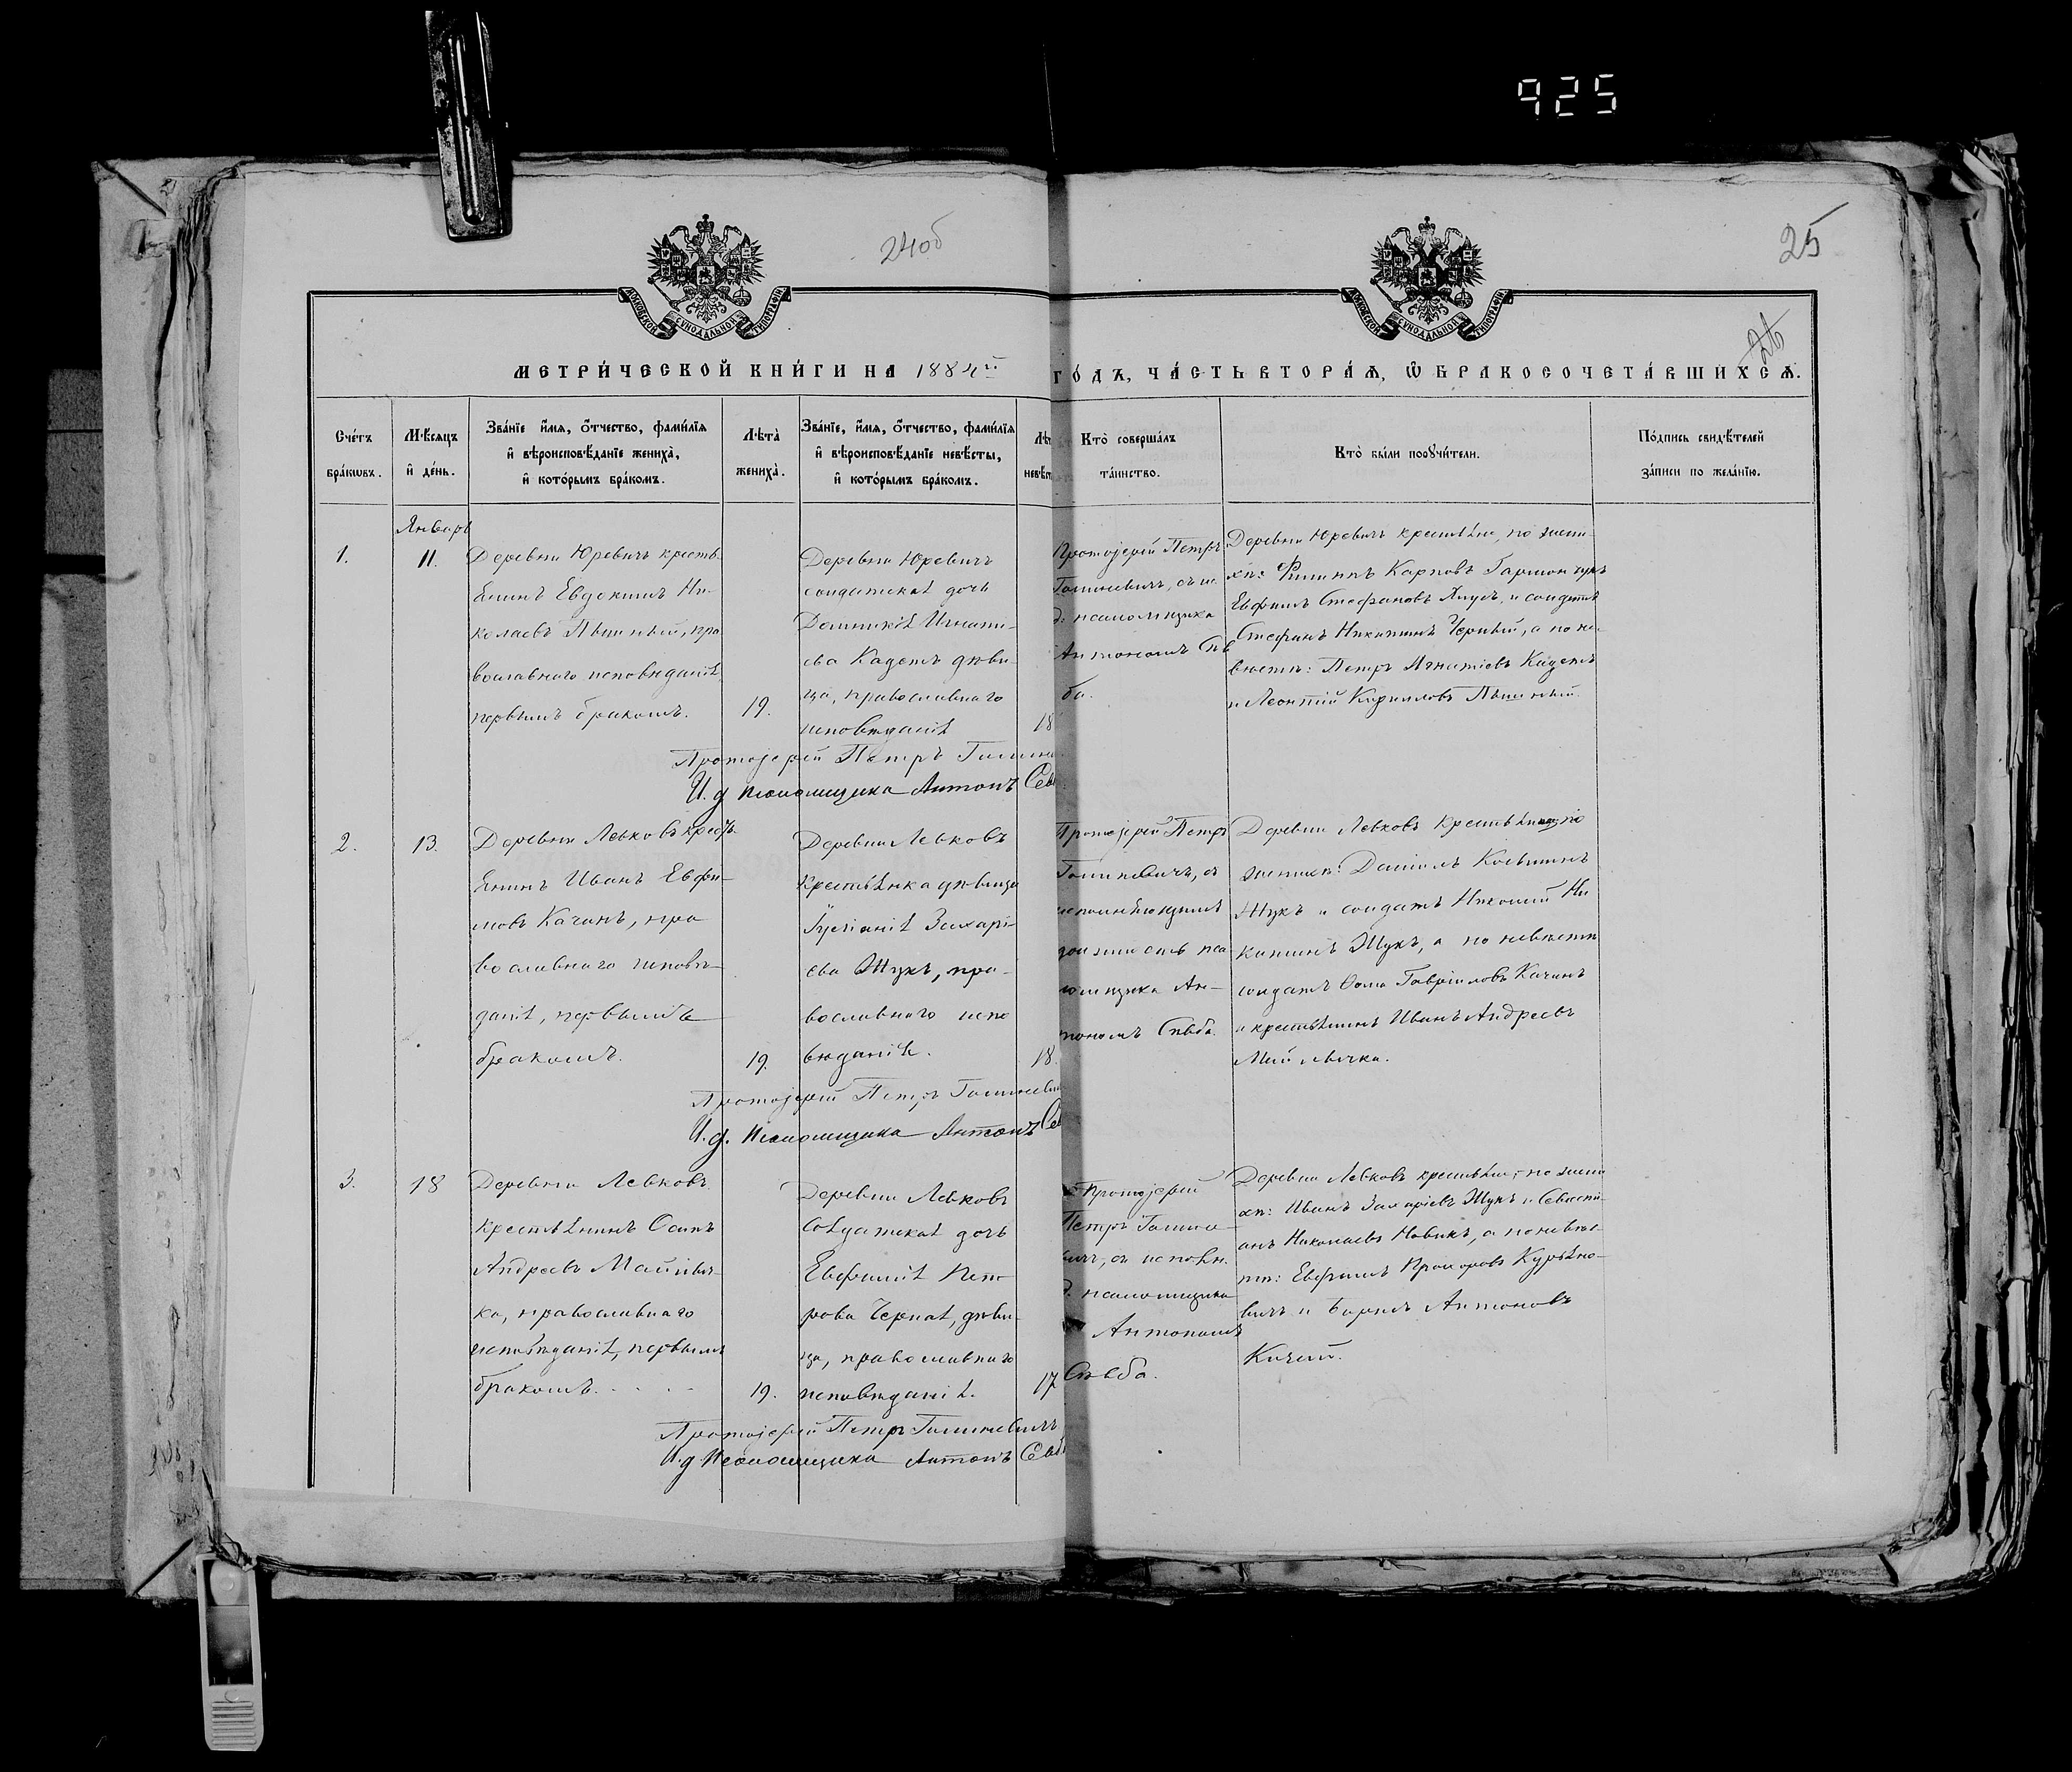 925
24об
25
26
МОСКОВСКОЙ СѴНОДАЛЬНОЙ ТИПОГРАФІИ
МОСКОВСКОЙ СѴНОДАЛЬНОЙ ТИПОГРАФІИ
МЕТРИ́ЧЕСКОЙ КНИ́ГИ НА 1884й ГО́ДЪ, ЧА́СТЬ ВТОРА́Ѧ, Ѽ БРАКОСОЧЕТА́ВШИХСѦ.
Сче́тъ бра́кѡвъ.
Мѣ́сѧцъ и҆ де́нь.
Зва́нїе и҆́мѧ, ѻ҆́тчество, фами́лїѧ и҆ вѣроисповѣ́данїе жениха̀, и҆ кото́рымъ бра́комъ.
Лѣ́та̀ жениха̀.
Зва́нїе, и҆́мѧ, ѻ҆́тчество, фами́лїѧ и҆ вѣроисповѣ́данїе невѣ́сты, и҆ кото́рымъ бра́комъ.
Лѣт невѣст
Кто̀ соверша́лъ та́инство.
Кто̀ бы́ли порꙋчи́тели.
По́дпись свидѣ́телей за́писи по жела́нїю.
Январь
1.
11.
Деревни Юревичъ кресть-
янинъ Евдокимъ Ни-
колаевъ Пѣшный, пра
вославнаго исповѣданія,
первымъ бракомъ.
19.
Деревни Юревичъ
солдатская дочь
Домникія Игнати-
ева Кадетъ дѣви-
ца, православнаго
исповѣданія
18
Протоіерей Петръ
съ и.
д. псаломщика
Антономъ Сѣв
ба.
Деревни Юревичъ крестьяне, по жени-
хѣ: Филиппъ Карповъ
Евфимъ Стефановъ и солдатъ
Стефанъ Никитинъ Черный, а по не-
вѣстѣ: Петръ Игнатіевъ Кадетъ
и Леонтій Кирилловъ Пѣшный.
Протоіерей Петръ
И. д. псаломщика Антонъ Сѣв
2.
13.
Деревни Левковъ крестъ-
янинъ Иванъ Евфи-
мовъ Качанъ, пра
вославнаго исповѣ-
данія, первымъ
бракомъ.
19.
Деревни Левковъ
крестьянка дѣвица
Іуліанія Захарі-
ева Жукъ, пра-
вославнаго испо
вѣданія.
18.
Протоіерей Петръ
съ
исполняющимъ
должность пса
ломщика Ан-
тономъ Сѣвба.
Деревни Левковъ крестьянинъ по
женихѣ: Даніилъ Косьминъ
Жукъ и солдатъ Николай Ни
китинъ Жукъ, а по невѣстѣ
солдатъ Ѳома Гавріиловъ Качанъ
и крестьянинъ Иванъ Андреевъ
Протоіерей Петръ
И. д. псаломщика Антонъ Сѣв
3.
18
Деревни Левковъ
крестьянинъ Осипъ
Андреевъ
ка, православнаго
исповѣданія, первымъ
бракомъ.
19.
Деревни Левковъ
солдатская дочь
Евфимія Пет
рова Черная, дѣви-
ца, православнаго
исповѣданія.
17
Протоіерей
Петръ
вичъ, съ исполн.
д. псаломщика
Антономъ
Сѣвба.
Деревни Левковъ крестьяне, по жени
хѣ: Иванъ Захаріевъ Жукъ и Севасті-
анъ Николаевъ Новикъ, а по невѣс-
тѣ: Евфимъ Прохоровъ Курьяно-
вичъ и Антоновъ
Протоіерей Петръ
И. д. псаломщика Антонъ Сѣвб